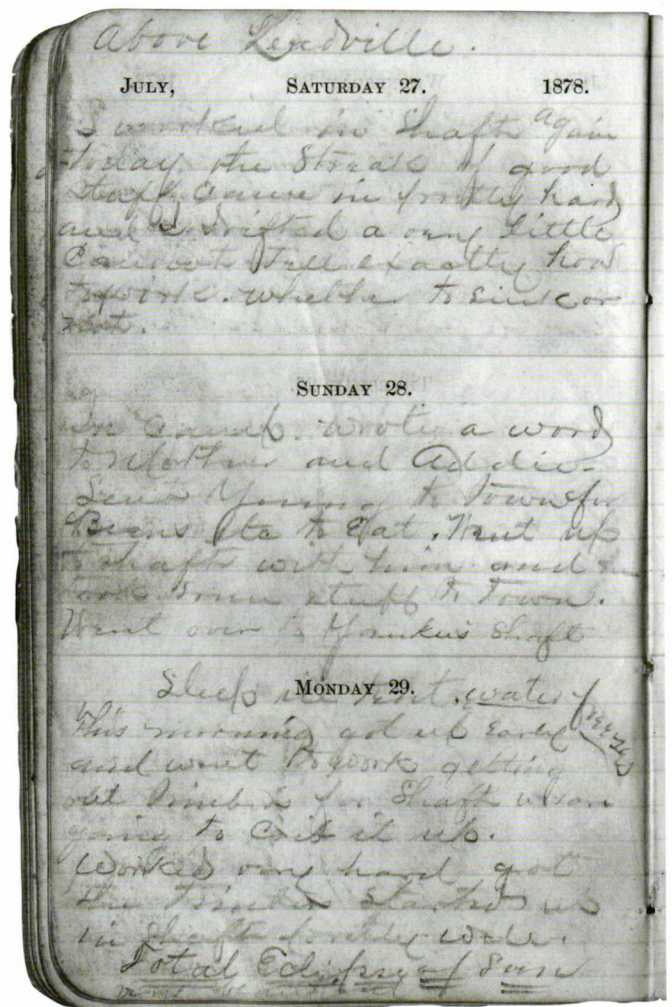 Above Leadville.
JULY, SATURDAY 27. 1878.
I worked in Shaft again
today. the Streak of good
Stuff came in pretty hard
and I drifted a very little
Cannot tell exactly how
to work. whether to sink or
not.
SUNDAY 28.
In Camp. Wrote a word
to Mother and Addie
Sent Young to Town for
Beans etc to Eat. Went up
to shaft with him and he
took some stuff to Town.
Went over to Yankus Shaft
MONDAY 29.
Sleep in tent. water freezes
This morning got up Early
and went to work getting
out Timber for Shaft
going to Crib it up.
Worked very hard got
the Timber Started up
in Shaft pretty well.
Total Eclipse of Sun